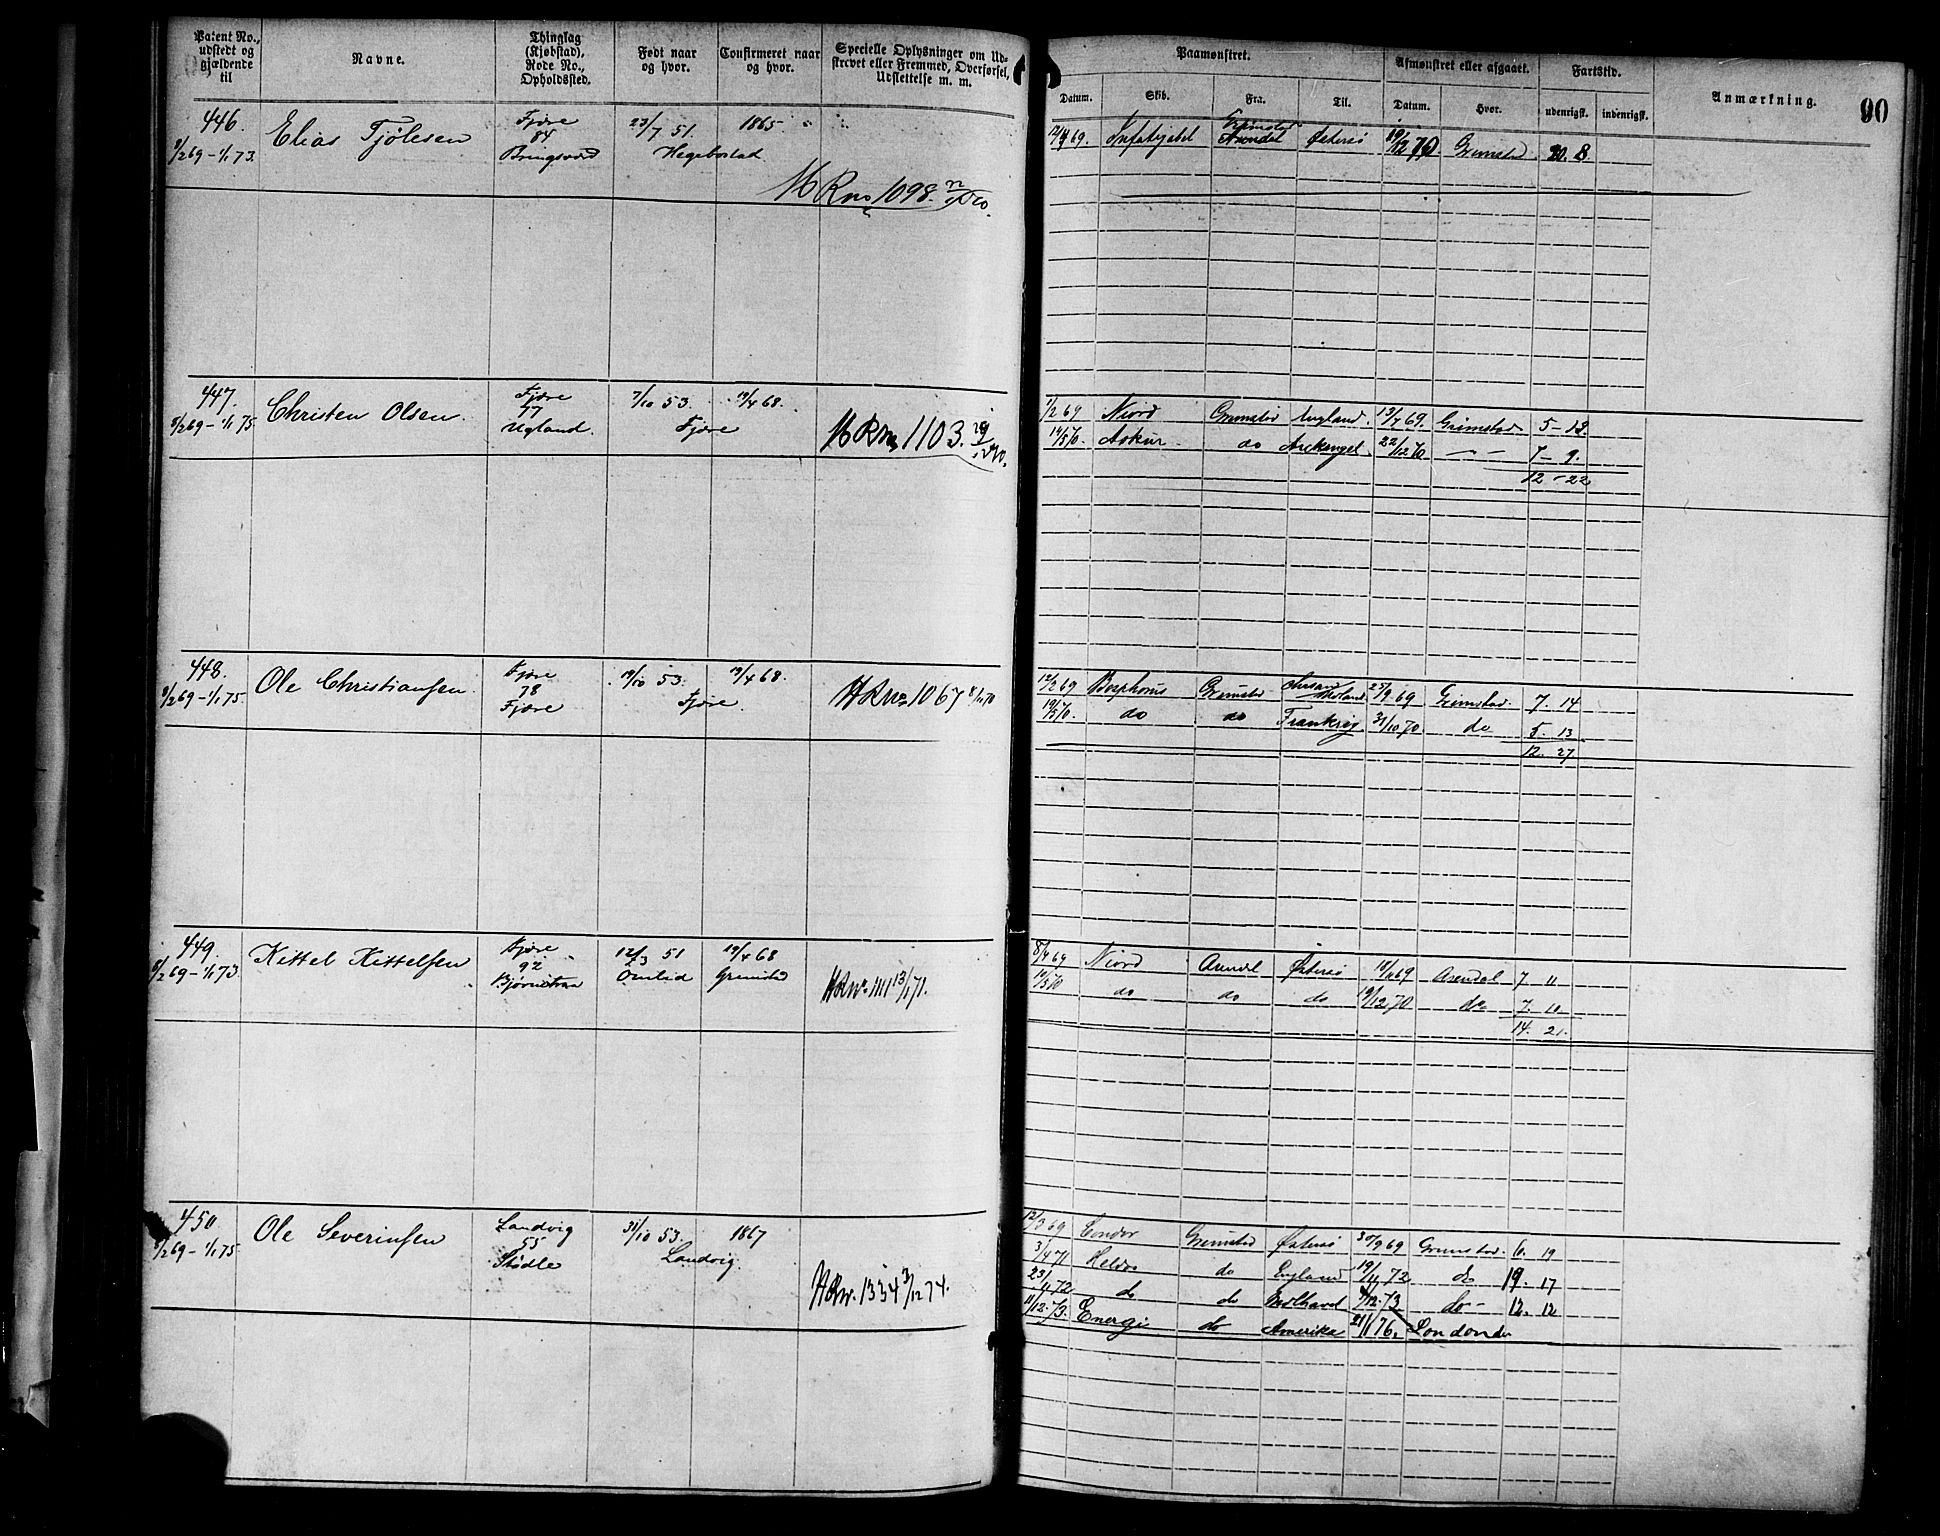 Patent No., udstedt og gjældende til
Navne.
Thinglag (Kjøbstad), Rode No., Opholdssted.
Født naar og hvor.
Confirmeret naar og hvor.
Specielle Oplysninger om Udskrevet eller Fremmed, Overførsel, Udslettelse m. m.
Paamønstret.
Afmønstret eller afgaaet.
Fartstid.
Anmærkning.
90
Datum.
Skib.
Fra.
Til.
Datum.
Hvor.
udenrigsk.
indenrigsk.
446.
8/2 69 - 1/1 73.
Elias Tjølesen
Fjære
84
Bringsværd
23/7 51.
1865
Hegebostad
HRno 1098.
12/4 69.
Grimstad
Arendal
Østersö
Grimstad
20. 8
447.
8/2 69 - 1/1 75
Christen Olsen.
Fjære
77
Ugland.
7/10 53.
19/4 68.
Fjære
HRno 1103.
1/2 69
Niord
Grimstad
England.
13/7 69.
Grimstad
5 - 13.
14/5 70.
Askur
do
Archangel.
22/12 70
7 - 9.
12 - 22
448.
8/2 69 - 1/1 75.
Ole Christiansen.
Fjære
78
Fjære
19/10 53.
19/4 68.
Fjære.
HRno 1067 8/11 70
12/2 69
Bosphorus
Grimstad
27/9 69
Grimstad.
7. 14
19/5 70.
do
do
Frankrig
31/10 70
do
5. 13
12. 27
449.
8/2 69 - 1/1 73.
Kittel Kittelsen
Fjære
92
12/3 51
Omlid
19/4 68
Grimstad
HRno 1111 13/1 71.
8/4 69
Niord
Arendal
Østersö
18/11 69
Arendal
7 11
10/5 70
do
do
do
19/12 70
do
7. 10.
14. 21.
450
8/2 69 - 1/1 75.
Ole Severinsen
Landvig
55
Stødle
31/10 53.
1867
Landvig.
HRno. 1334 3/12 74.
12/3 69
Condor
Grimstad
Østersö
30/9 69
Grimstad.
6. 19
3/4 71
Heldos
do
England
19/11 72
do
19. 17
23/11 72
do
do
12. 73
do
12. 12
11/12 73.
Energi
do
Amerika
21/1 76.
London